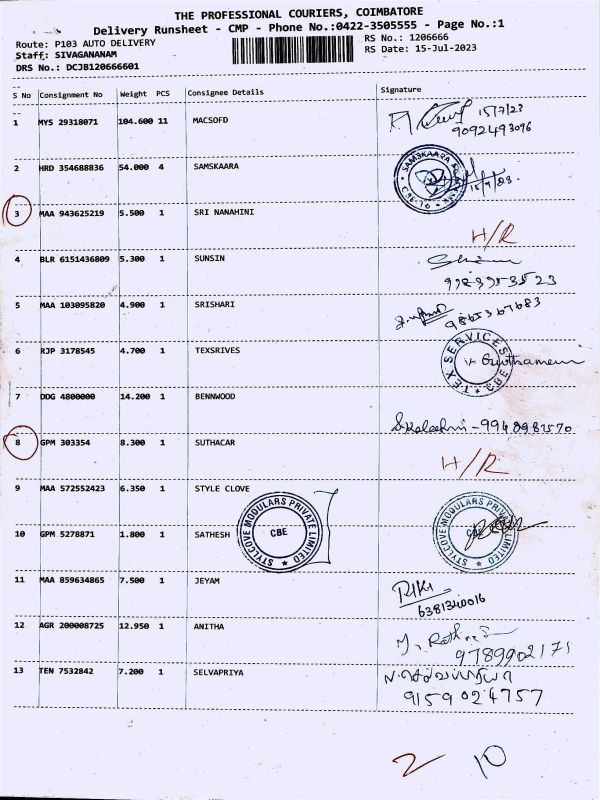 THE PROFESSIONAL COURIERS, COIMBATORE
Delivery Runsheet - CMP - Phone No.:0422-3505555 - Page No.:1
Route: P103 AUTO DELIVERY RS No.: 1206666
Staff: SIVAGANANAM RS Date: 15-Jul-2023
DRS No.: DCJB120666601
S No Consignment No Weight PCS Consignee Details Signature
1 MYS 29318071 104.600 11 MACSOFD 15/7/23
9092493096
2 HRD 354688836 54.000 4 SAMSKAARA
SAMSKAARA
3 MAA 943625219 5.500 1 SRI NANAHINI
H/R
4 BLR 6151436809 5.300 1 SUNSIN
5 MAA 103095820 4.900 1 SRISHARI
9865367683
6 RJP 3178545 4.700 1 TEXSRIVES
TEX SERVICES CBE
7 DDG 4800000 14.200 1 BENNWOOD
8 GPM 303354 8.300 1 SUTHACAR
H/R
9 MAA 572552423 6.350 1 STYLE CLOVE
STYLCOVE MODULARS PRIVATE LIMITED CBE STYLCOVE MODULARS PRIVATE LIMITED CBE
10 GPM 5278871 1.800 1 SATHESH
11 MAA 859634865 7.500 1 JEYAM
6381340016
12 AGR 200008725 12.950 1 ANITHA
9789902171
13 TEN 7532842 7.200 1 SELVAPRIYA ந.செல்வப்பிரியா
9159024757
2 10